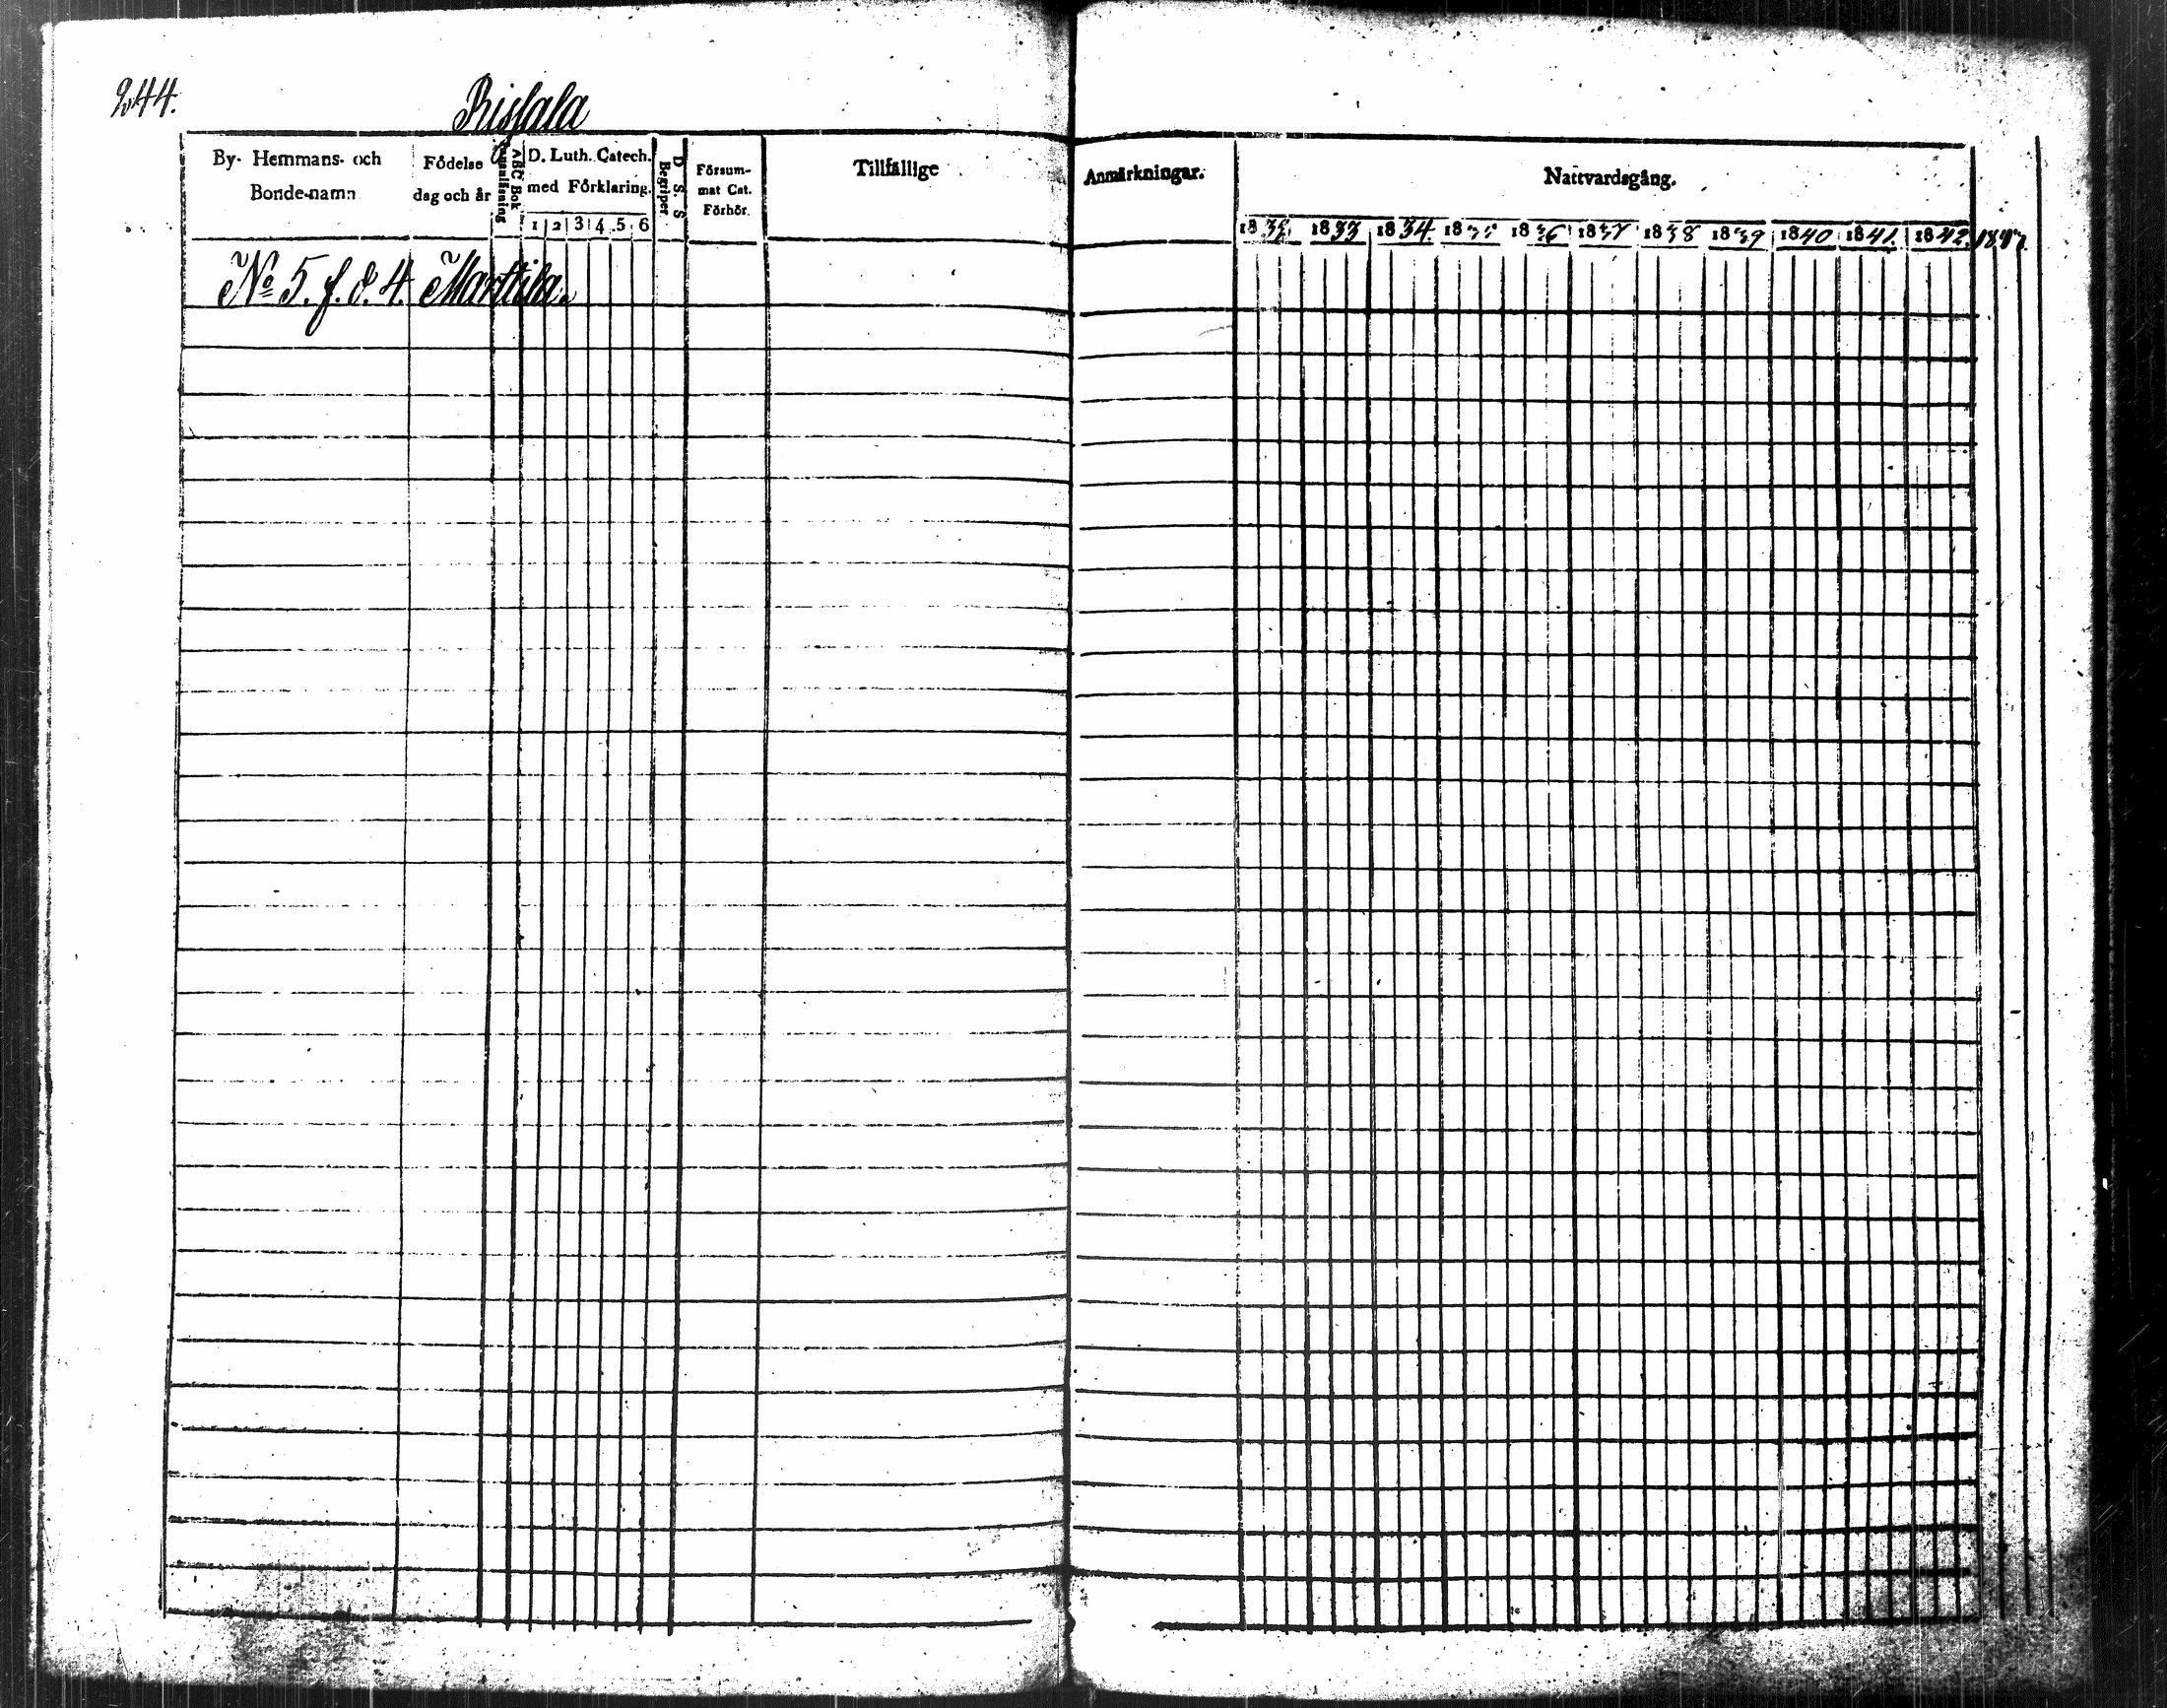 244.
Rissala
By- Hemmans- och Bonde-namn
Födelse dag och år
Innanläsning
ABC Bok
D. Luth. Catech. med Förklaring.
1 2 3 4 5 6
D. S. S
Begriper
Försum-
mat Cat.
Förhör.
Tillfällige
Anmärkningar.
Nattvardsgång.
1832. 1833 1834. 1835 1836 1837 1838 1839 1840 1841. 1842.
No 5. f. d. 4. Marttila.